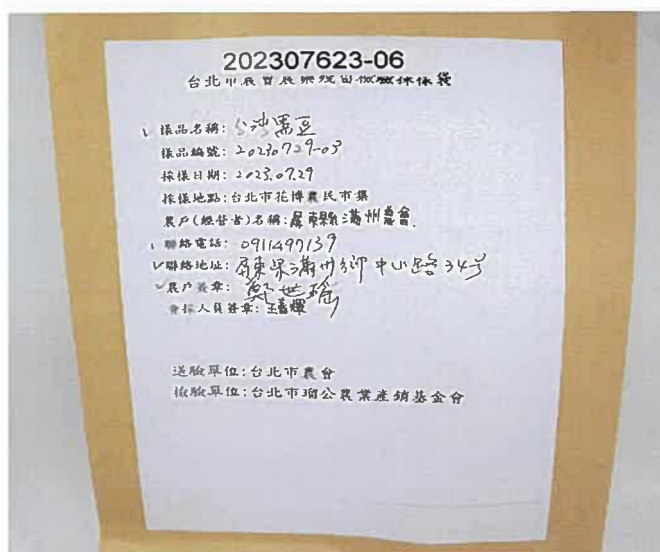 202307623-06
台北市農會農藥殘留檢驗採樣袋
樣品名稱: 黑豆
樣品編號: 20230729-03
採樣日期: 2023.07.29
採樣地點: 台北市花博農民市集
農戶(經營者)名稱: 屏東縣滿州農會.
聯絡電話: 0911497139
聯絡地址: 屏東県滿州鄉中山路34号
農戶簽章:
會採人員簽章: 王嘉輝
送驗單位: 台北市農會
檢驗單位: 台北市瑠公農業產銷基金會